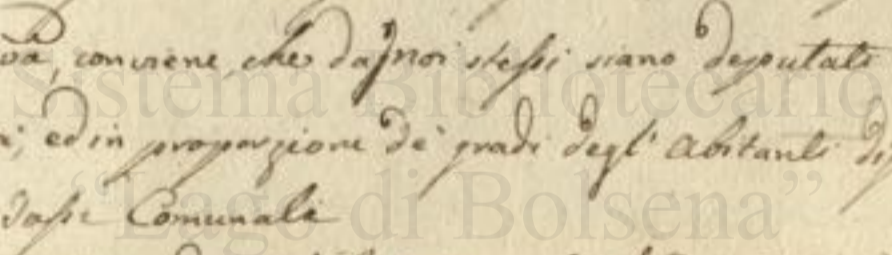 và, conviene, che da noi stessi siano deputati
ed in proporzione de' gradi degl' Abitanti di
Tasse Comunali
Sistema Bibliotecario
"Lago di Bolsena"